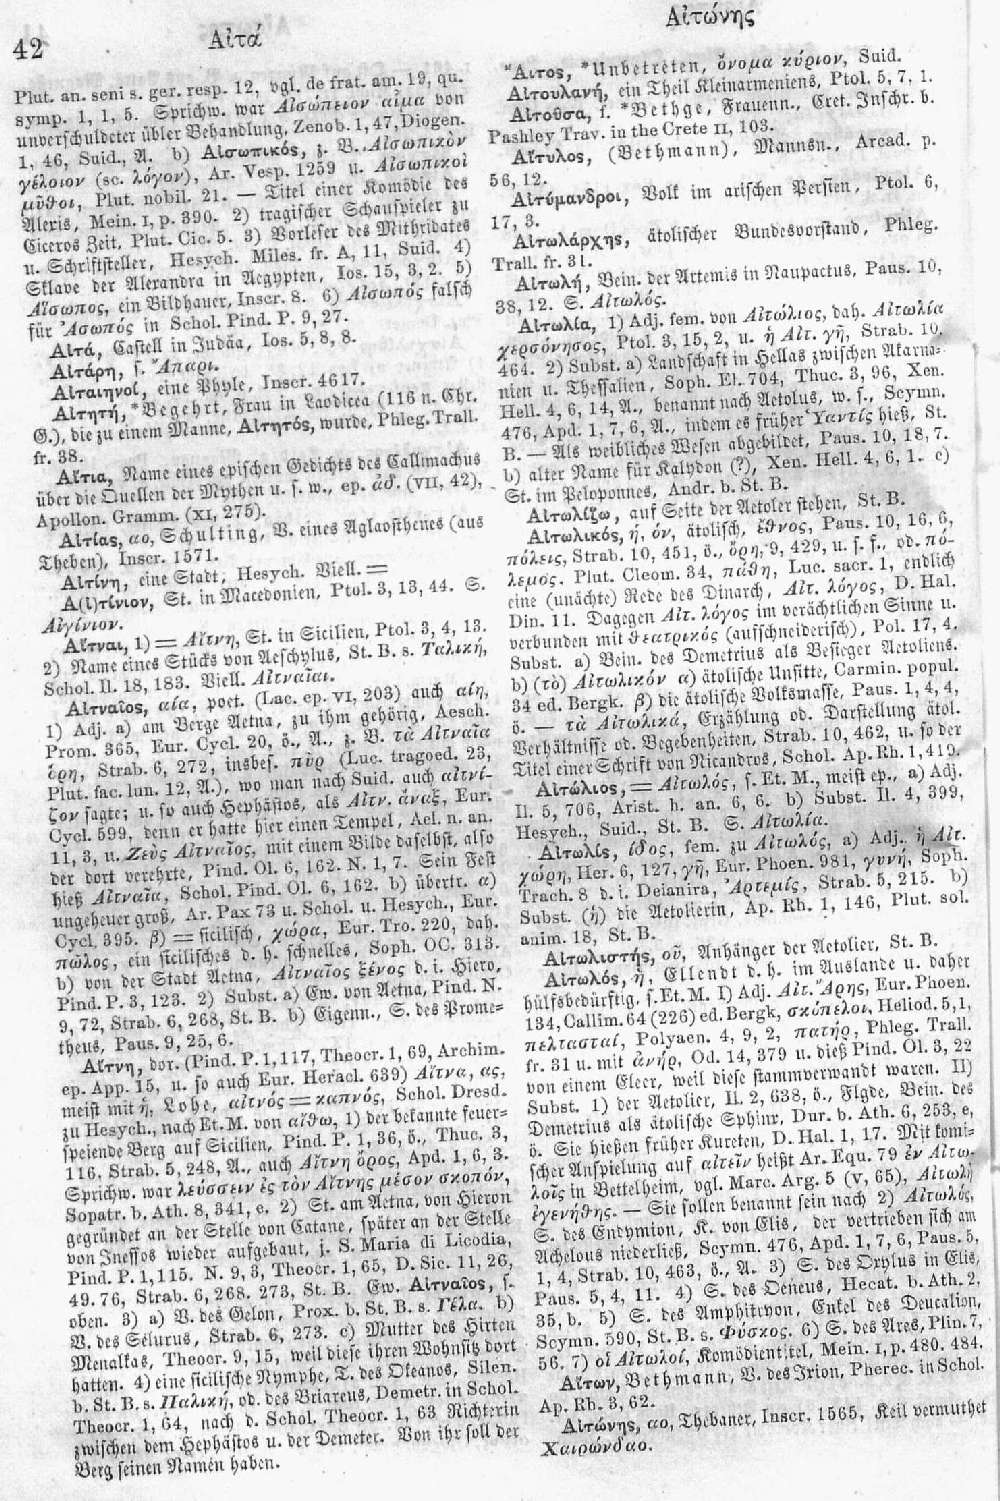 42
Αἰτά
Αἰτώνης
Plut. an. seni s. ger. resp. 12, vgl. de frat. am. 19, qu.
symp. 1, 1, 5. Sprichw. war Αἰσώπειον αἷμα von
unverschuldeter übler Behandlung, Zenob. 1, 47, Diogen.
1, 46, Suid., A. b) Αἰσωπικός, z. B. Αἰσωπικὸν
γέλοιον (sc. λόγον), Ar. Vesp. 1259 u. Αἰσωπικοὶ
μῦθοι, Plut. nobil. 21. — Titel einer Komödie des
Alexis, Mein. I, p. 390. 2) tragischer Schauspieler zu
Ciceros Zeit, Plut. Cic. 5. 3) Vorleser des Mithridates
u. Schriftsteller, Hesych. Miles. fr. A, 11, Suid. 4)
Sklave der Alexandra in Aegypten, Ios. 15, 3, 2. 5)
Αἴσωπος, ein Bildhauer, Inscr. 8. 6) Αἰσωπός falsch
für Ἀσωπός in Schol. Pind. P. 9, 27.
Αἰτά, Castell in Judäa, Ios. 5, 8, 8.
Αἰτάρη, s. Ἄπαρι.
Αἰταιηνοί, eine Phyle, Inscr. 4617.
Αἰτητή, *Begehrt, Frau in Laodicea (116 n. Chr.
G.), die zu einem Manne, Αἰτητός, wurde, Phleg. Trall.
fr. 38.
Αἴτια, Name eines epischen Gedichts des Callimachus
über die Quellen der Mythen u. s. w., ep. ἀδ. (VII, 42),
Apollon. Gramm. (XI, 275).
Αἰτίας, αο, Schulting, V. eines Aglaosthenes (aus
Theben), Inscr. 1571.
Αἰτίνη, eine Stadt, Hesych. Viell. =
Α(ἰ)τίνιον, St. in Macedonien, Ptol. 3, 13, 44. S.
Αἰγίνιον.
Αἴτναι, 1) = Αἴτνη, St. in Sicilien, Ptol. 3, 4, 13.
2) Name eines Stücks von Aeschylus, St. B. s. Ταλική,
Schol. Il. 18, 183. Viell. Αἰτναῖαι.
Αἰτναῖος, αία, poet. (Lac. ep. VI, 203) auch αίη,
1) Adj. a) am Berge Aetna, zu ihm gehörig, Aesch.
Prom. 365, Eur. Cycl. 20, ö., A., z. B. τὰ Αἰτναῖα
ὄρη, Strab. 6, 272, insbes. πῦρ (Luc. tragoed. 23,
Plut. fac. lun. 12, A.), wo man nach Suid. auch αἰτνί-
ζον sagte; u. so auch Hephästos, als Αἰτν. ἄναξ, Eur.
Cycl. 599, denn er hatte hier einen Tempel, Ael. n. an.
11, 3, u. Ζεὺς Αἰτναῖος, mit einem Bilde daselbst, also
der dort verehrte, Pind. Ol. 6, 162. N. 1, 7. Sein Fest
hieß Αἰτναῖα, Schol. Pind. Ol. 6, 162. b) übertr. α)
ungeheuer groß, Ar. Pax 73 u. Schol. u. Hesych., Eur.
Cycl. 395. β) = sicilisch, χώρα, Eur. Tro. 220, dah.
πῶλος, ein sicilisches d. h. schnelles, Soph. OC. 313.
b) von der Stadt Aetna, Αἰτναῖος ξένος d. i. Hiero,
Pind. P. 3, 123. 2) Subst. a) Ew. von Aetna, Pind. N.
9, 72, Strab. 6, 268, St. B. b) Eigenn., S. des Prome-
theus, Paus. 9, 25, 6.
Αἴτνη, dor. (Pind. P. 1, 117, Theocr. 1, 69, Archim.
ep. App. 15, u. so auch Eur. Heracl. 639) Αἴτνα, ας,
meist mit ἡ, Lohe, αἰτνός = καπνός, Schol. Dresd.
zu Hesych., nach Et. M. von αἴθω, 1) der bekannte feuer-
speiende Berg auf Sicilien, Pind. P. 1, 36, ö., Thuc. 3,
116, Strab. 5, 248, A., auch Αἴτνη ὄρος, Apd. 1, 6, 3.
Sprichw. war λεύσσειν ἐς τὸν Αἴτνης μέσον σκοπόν,
Sopatr. b. Ath. 8, 341, e. 2) St. am Aetna, von Hieron
gegründet an der Stelle von Catane, später an der Stelle
von Inessos wieder aufgebaut, j. S. Maria di Licodia,
Pind. P. 1, 115. N. 9, 3, Theocr. 1, 65, D. Sic. 11, 26,
49. 76, Strab. 6, 268. 273, St. B. Ew. Αἰτναῖος, s.
oben. 3) a) V. des Gelon, Prox. b. St. B. s. Γέλα. b)
V. des Selurus, Strab. 6, 273. c) Mutter des Hirten
Menalkas, Theocr. 9, 15, weil diese ihren Wohnsitz dort
hatten. 4) eine sicilische Nymphe, T. des Okeanos, Silen.
b. St. B. s. Παλική, od. des Briareus, Demetr. in Schol.
Theocr. 1, 64, nach d. Schol. Theocr. 1, 63 Richterin
zwischen dem Hephästos u. der Demeter. Von ihr soll der
Berg seinen Namen haben.
*Αιτος, *Unbetreten, ὄνομα κύριον, Suid.
Αἰτουλανή, ein Theil Kleinarmeniens, Ptol. 5, 7, 1.
Αἰτοῦσα, f. *Bethge, Frauenn., Cret. Inschr. b.
Pashley Trav. in the Crete II, 103.
Αἴτυλος, (Bethmann), Mannsn., Arcad. p.
56, 12.
Αἰτύμανδροι, Volk im arischen Persien, Ptol. 6,
17, 3.
Αἰτωλάρχης, ätolischer Bundesvorstand, Phleg.
Trall. fr. 31.
Αἰτωλή, Bein. der Artemis in Naupactus, Paus. 10,
38, 12. S. Αἰτωλός.
Αἰτωλία, 1) Adj. fem. von Αἰτώλιος, dah. Αἰτωλία
χερσόνησος, Ptol. 3, 15, 2, u. ἡ Αἰτ. γῆ, Strab. 10,
464. 2) Subst. a) Landschaft in Hellas zwischen Akarna-
nien u. Thessalien, Soph. El. 704, Thuc. 3, 96, Xen.
Hell. 4, 6, 14, A., benannt nach Aetolus, w. s., Scymn.
476, Apd. 1, 7, 6, A., indem es früher Ὑαντίς hieß, St.
B. — Als weibliches Wesen abgebildet, Paus. 10, 18, 7.
b) alter Name für Kalydon (?), Xen. Hell. 4, 6, 1. c)
St. im Peloponnes, Andr. b. St. B.
Αἰτωλίζω, auf Seite der Aetoler stehen, St. B.
Αἰτωλικός, ή, όν, ätolisch, ἔθνος, Paus. 10, 16, 6,
πόλεις, Strab. 10, 451, ö., ὄρη, 9, 429, u. s. f., od. πό-
λεμος. Plut. Cleom. 34, πάθη, Luc. sacr. 1, endlich
eine (unächte) Rede des Dinarch, Αἰτ. λόγος, D. Hal.
Din. 11. Dagegen Αἰτ. λόγος im verächtlichen Sinne u.
verbunden mit θεατρικός (aufschneiderisch), Pol. 17, 4.
Subst. a) Bein. des Demetrius als Besieger Aetoliens.
b) (τὸ) Αἰτωλικόν α) ätolische Unsitte, Carmin. popul.
34 ed. Bergk. β) die ätolische Volksmasse, Paus. 1, 4, 4,
ö. — τὰ Αἰτωλικά, Erzählung od. Darstellung ätol.
Verhältnisse od. Begebenheiten, Strab. 10, 462, u. so der
Titel einer Schrift von Nicandros, Schol. Ap. Rh. 1, 419.
Αἰτώλιος, = Αἰτωλός, s. Et. M., meist ep., a) Adj.
Il. 5, 706, Arist. h. an. 6, 6. b) Subst. Il. 4, 399,
Hesych., Suid., St. B. S. Αἰτωλία.
Αἰτωλίς, ίδος, fem. zu Αἰτωλός, a) Adj. ἡ Αἰτ.
χώρη, Her. 6, 127, γῆ, Eur. Phoen. 981, γυνή, Soph.
Trach. 8 d. i. Deianira, Ἄρτεμίς, Strab. 5, 215. b)
Subst. (ἡ) die Aetolierin, Ap. Rh. 1, 146, Plut. sol.
anim. 18, St. B.
Αἰτωλιστής, οῦ, Anhänger der Aetolier, St. B.
Αἰτωλός, ἡ, Ellendt d. h. im Auslande u. daher
hülfsbedürftig, s. Et. M. I) Adj. Αἰτ. Ἄρης, Eur. Phoen.
134, Callim. 64 (226) ed. Bergk, σκόπελοι, Heliod. 5, 1,
πελτασταί, Polyaen. 4, 9, 2, πατήρ, Phleg. Trall.
fr. 31 u. mit ἀνήρ, Od. 14, 379 u. dieß Pind. Ol. 3, 22
von einem Eleer, weil diese stammverwandt waren. II)
Subst. 1) der Aetolier, Il. 2, 638, ö., Flgde, Bein. des
Demetrius als ätolische Sphinx, Dur. b. Ath. 6, 253, e,
ö. Sie hießen früher Kureten, D. Hal. 1, 17. Mit komi-
scher Anspielung auf αἰτεῖν heißt Ar. Equ. 79 ἐν Αἰτω-
λοῖς in Bettelheim, vgl. Marc. Arg. 5 (V, 65), Αἰτωλὴ
ἐγενήθης. — Sie sollen benannt sein nach 2) Αἰτωλός,
S. des Endymion, K. von Elis, der vertrieben sich am
Achelous niederließ, Scymn. 476, Apd. 1, 7, 6, Paus. 5,
1, 4, Strab. 10, 463, ö., A. 3) S. des Oxylus in Elis,
Paus. 5, 4, 11. 4) S. des Oeneus, Hecat. b. Ath. 2,
35, b. 5) S. des Amphitryon, Enkel des Deucalion,
Scymn. 590, St. B. s. Φύσκος. 6) S. des Ares, Plin. 7,
56. 7) οἱ Αἰτωλοί, Komödientitel, Mein. I, p. 480. 484.
Αἴτων, Bethmann, V. des Ixion, Pherec. in Schol.
Ap. Rh. 3, 62.
Αἰτώνης, αο, Thebaner, Inscr. 1565, Keil vermuthet
Χαιρώνδαο.